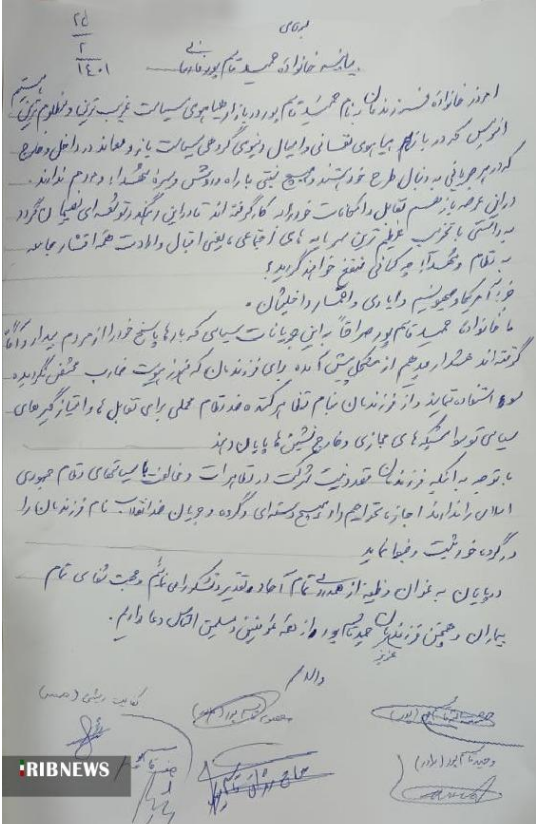 ۲۵
۲
۱۴۰۱
بیانیه خانواده حمید قاسم پور
امروز خانواده فرزندمان بنام حمید قاسم پور در بازار هیاهوی سیاست غریب ترین و مظلوم ترین هستیم
افسوس که در بازار هیاهوی نفسانی و امیال دنیوی گروهی سیاست باز و معاند در داخل و خارج
که در هر جریانی به دنبال طرح خود هستند و هیچ نسبتی با راه و روش و سیره شهدا و مردم ندارند.
در این عرصه باز هم تمایل و امکانات خود را به کار گرفته اند تا در این
برداشتی با تخریب عظیم ترین سرمایه های اجتماعی یعنی اقبال و ارادت همه اقشار جامعه
به نظام و شهدا، چه کسانی منتفع خواهند گردید؟
جز آمریکا و صهیونیسم و ایادی و داخلیشان.
ما خانواده حمید قاسم پور صراحتاً به این جریانات سیاسی که بارها پاسخ خود را از مردم بیدار و آگاه
گرفته اند هشدار میدهیم از مشکل پیش آمده برای فرزندمان که هنوز هویت ضارب مشخص نگردیده
سوء استفاده ننمایند و از فرزندمان بنام تظاهر کننده ضد نظام محملی برای تقابل ها و امتیازگیری های
سیاسی توسط شبکه های مجازی و خارج نشین ها پایان دهند
با توجه به آنکه فرزندمان قصد و نیت شرکت در تظاهرات و مخالفت با سیاستهای نظام جمهوری
اسلامی را نداشته اجازه نخواهیم داد هیچ دسته ای و گروه و جریان ضد انقلاب نام فرزندمان را
در گروه خود ثبت و ضبط نماید
در پایان به عنوان وظیفه از همدردی تمام آحاد تقدیر و تشکر نمائیم و جهت شفای تمام
بیماران و همچنین فرزند عزیزمان حمید قاسم پور از همه مومنین و مسلمین التماس دعا داریم.
والسلام
وحید قاسم پور (برادر)
IRIBNEWS